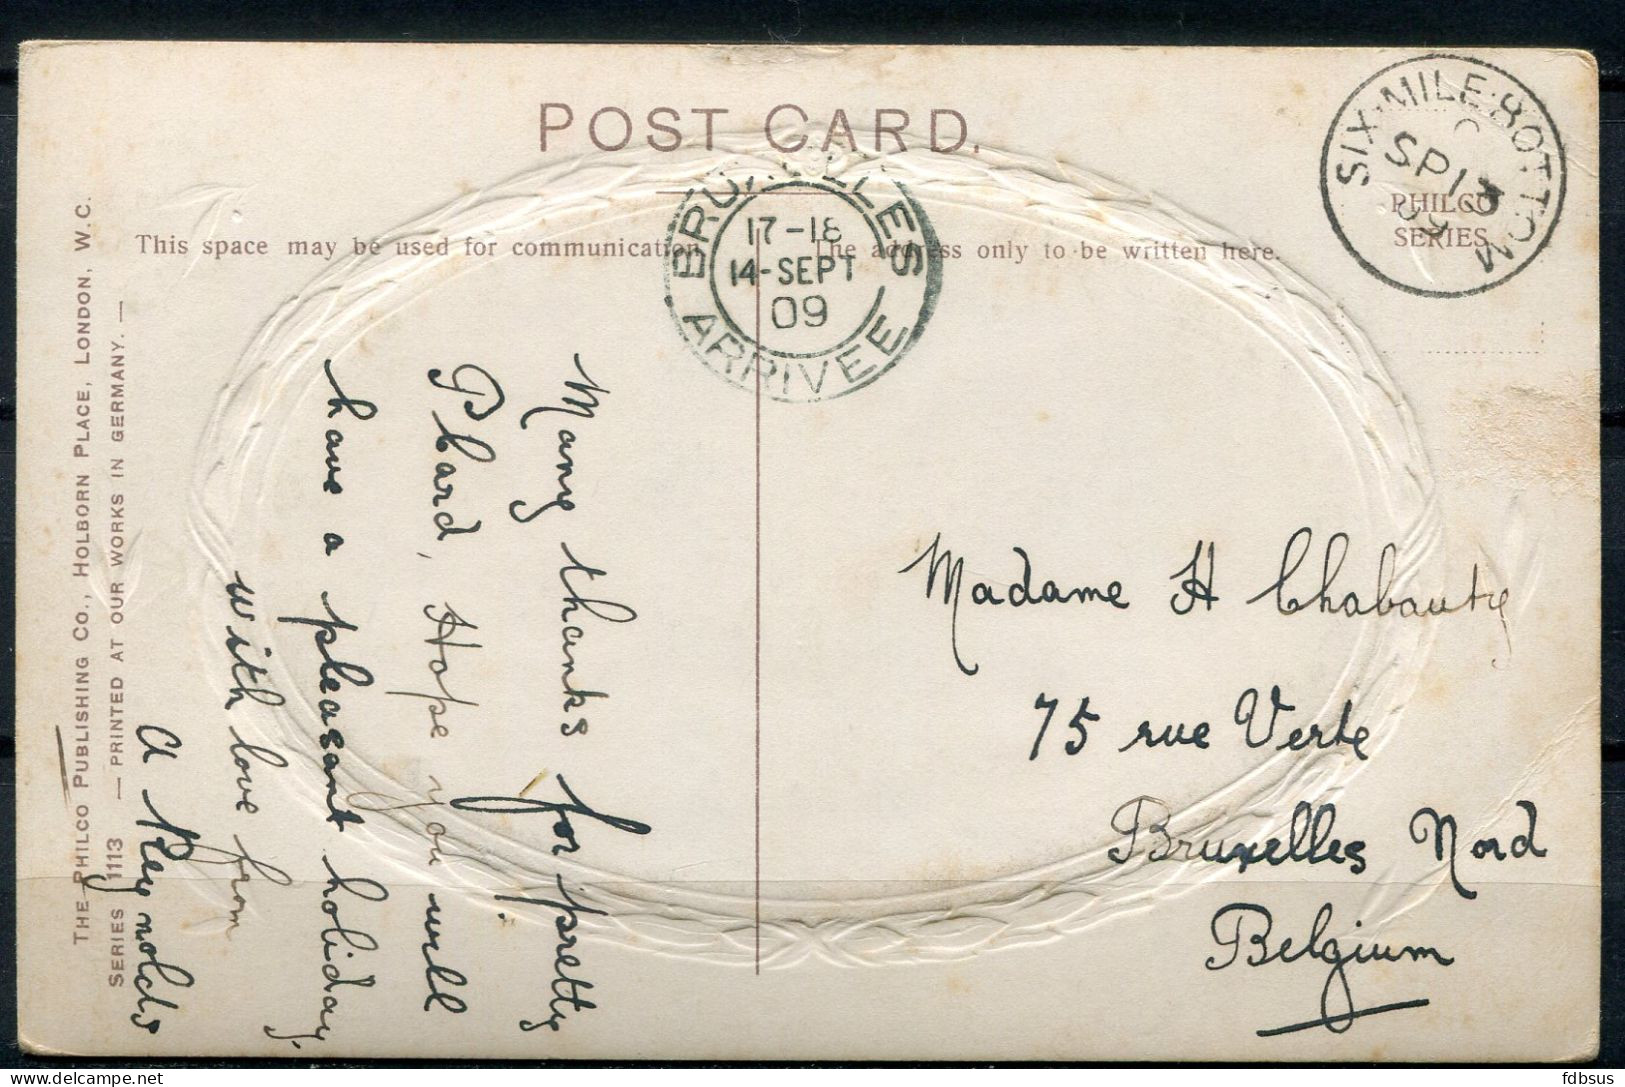 POST CARD.
SIX·MILE·BOTTOM
SP 13
09
PHILCO
SERIES.
BRUXELLES
17-18
14-SEPT
09
ARRIVEE
This space may be used for communication.
The address only to be written here.
THE PHILCO PUBLISHING CO., HOLBORN PLACE, LONDON, W.C.
SERIES 1113 — PRINTED AT OUR WORKS IN GERMANY. —
Many thanks for pretty
P. Card, Hope you will
have a pleasant holiday,
with love from
A Reynolds
Madame H Chabauty
75 rue Verte
Bruxelles Nord
Belgium
fdbsus